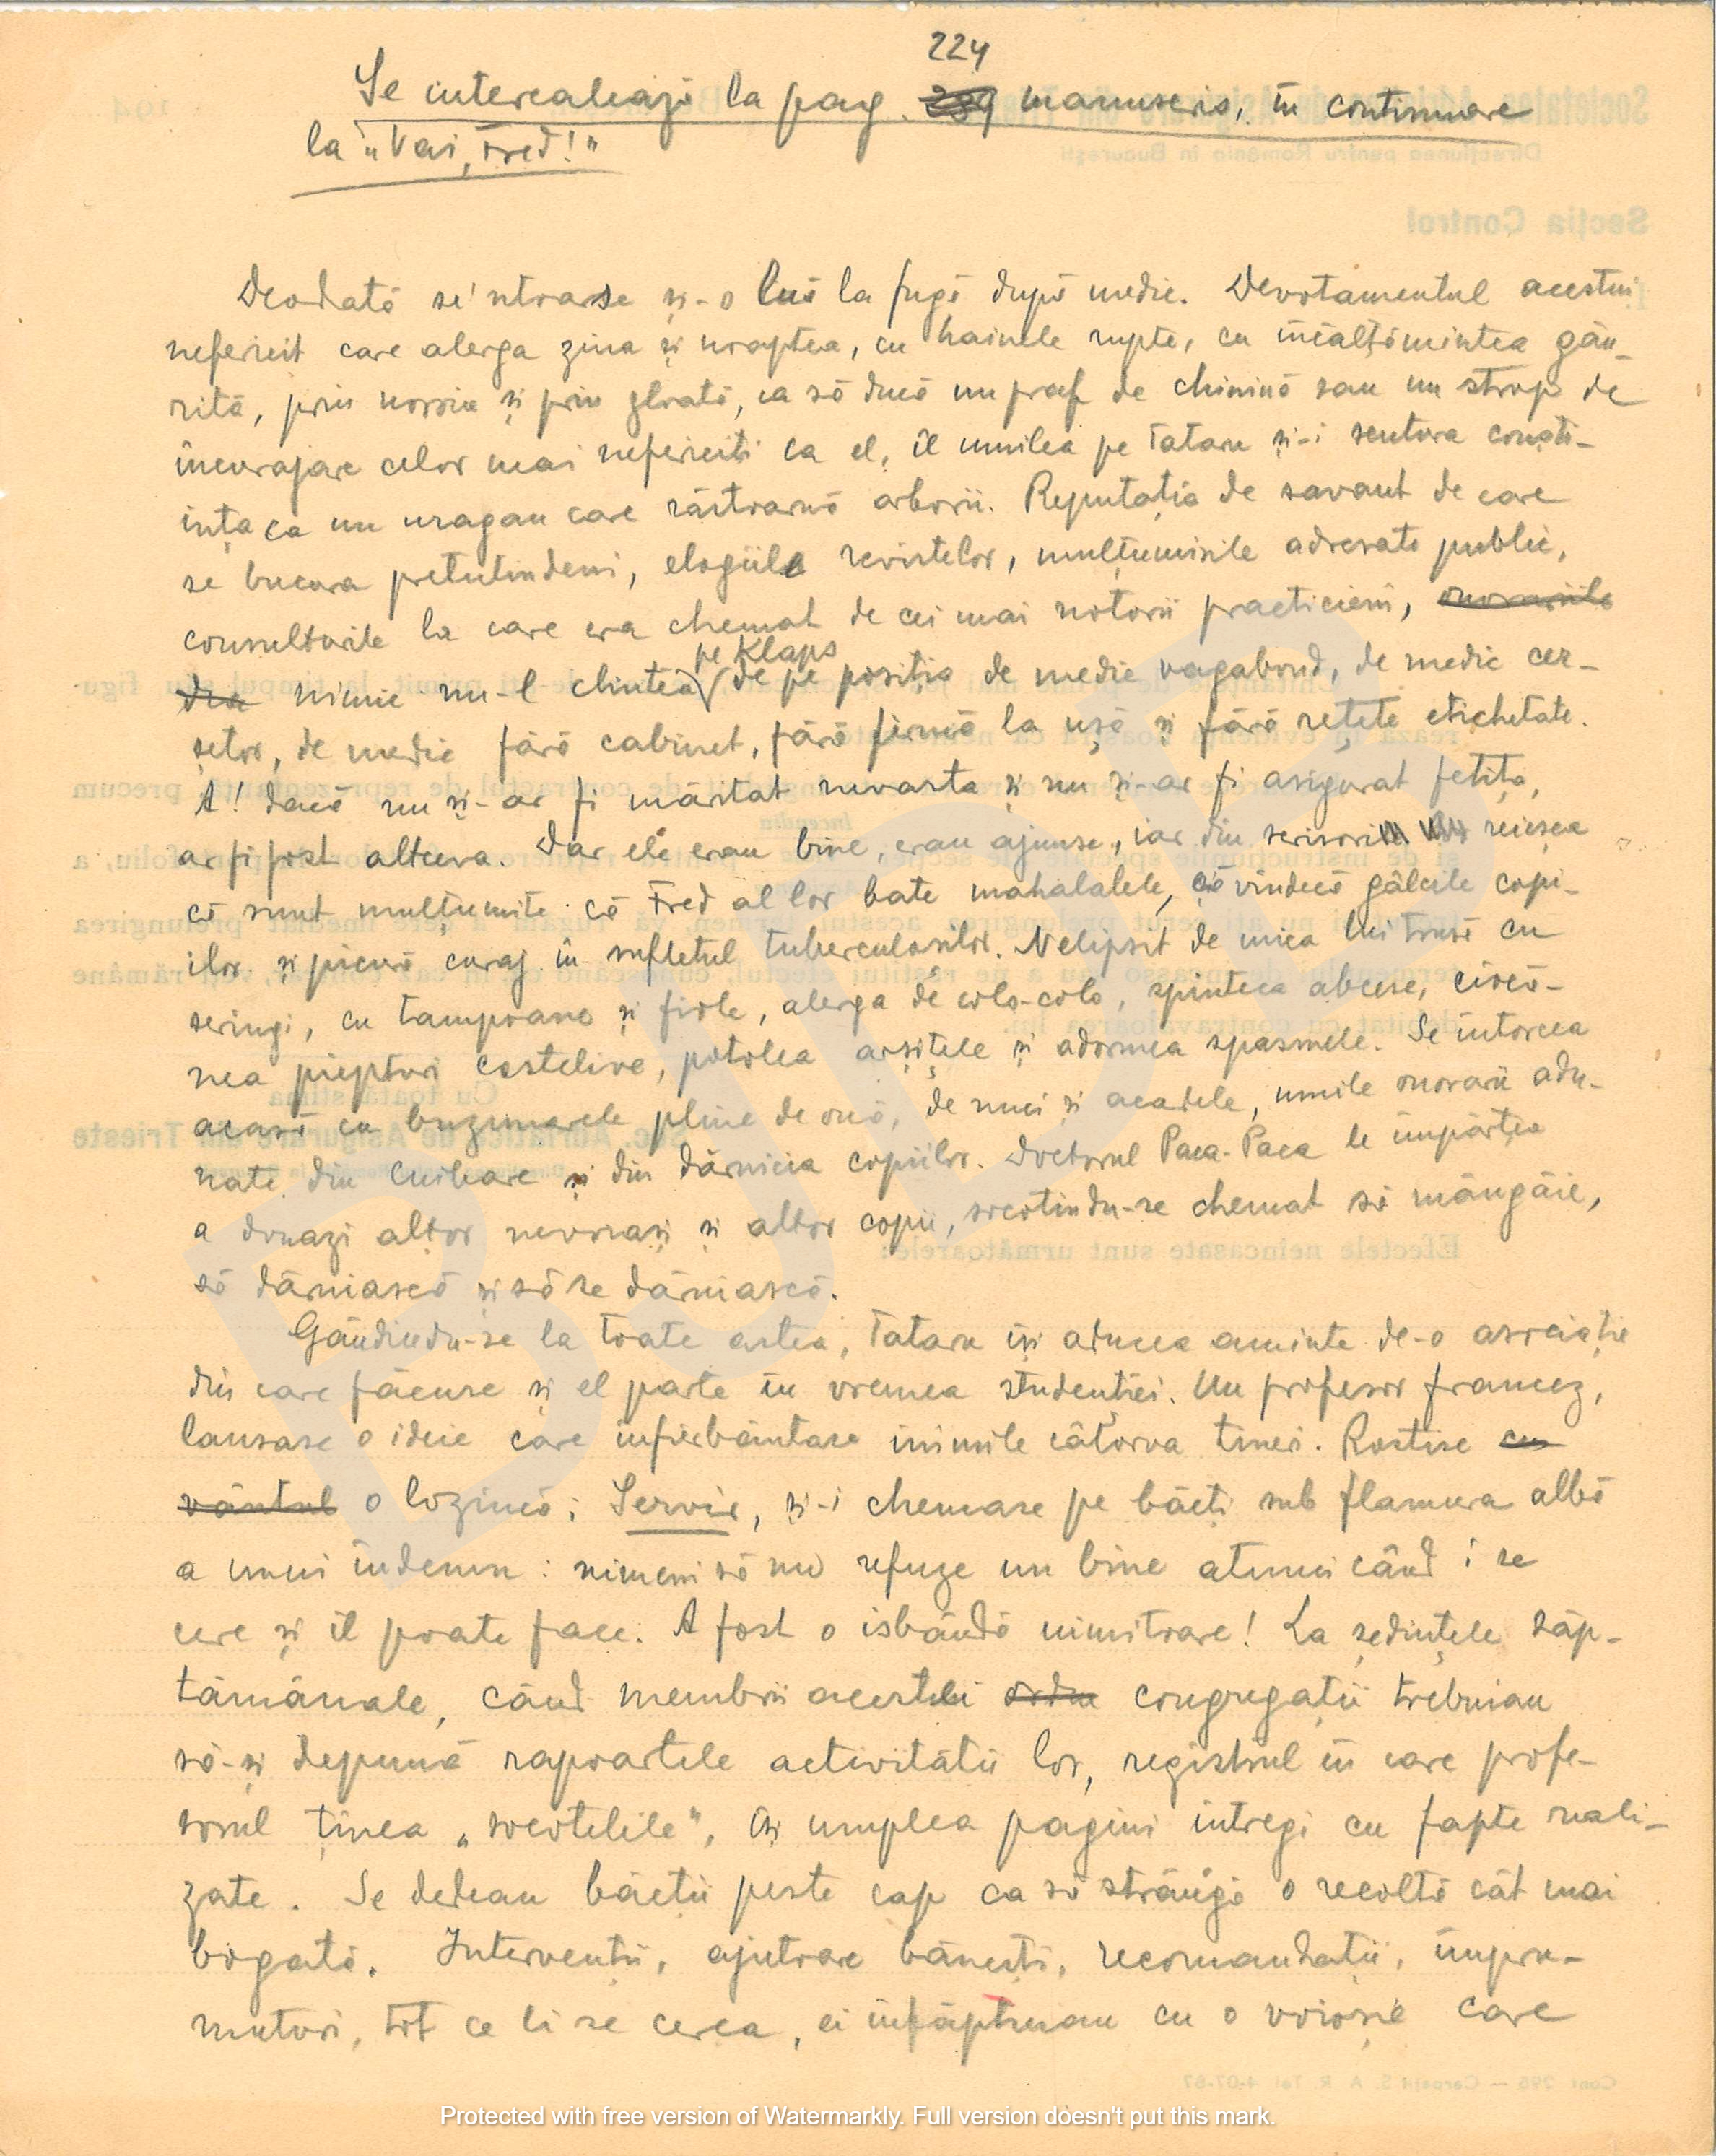 224
Se intercalează la pag. 289 manuscris, în continuare
la "Vai, Fred!"
Deodată se'ntoarse și-o luă la fugă după medic. Devotamentul acestui
nefericit care alerga ziua și noaptea, cu hainele rupte, cu încălțămintea gău-
rită, prin noroiu și prin gloată, ca să ducă un praf de chinină sau un strop de
încurajare celor mai nefericiți ca el, îl umilea pe Tataru și-i scutura conști-
ința ca un uragan care răstoarnă arborii. Reputația de savant de care
se bucura pretutindeni, elogiile revistelor, mulțumirile adresate public,
consulturile la care era chemat de cei mai notorii practicieni, onorariile
pe Klaps
nimic nu-l clintea de pe poziția de medic vagabond, de medic cer-
șetor, de medic fără cabinet, fără firmă la ușă și fără rețete etichetate.
A! dacă nu și-ar fi măritat nevasta și nu și-ar fi asigurat fetița,
ar fi fost altceva. Dar ele erau bine, erau ajunse, iar din scrisori reieșea
că sunt mulțumite că Fred al lor bate mahalalele, că vindecă gâlcile copi-
ilor și picură curaj în sufletul tuberculoșilor. Nelipsit de mica lui trusă cu
seringi, cu tampoane și fiole, alerga de colo-colo, spinteca abcese, ciocă-
nea piepturi costelive, potolea arșițele și adormea spasmele. Se întorcea
acasă cu buzunarele pline de ouă, de nuci și acadele, umile onorarii adu-
nate din cuibare și din dărnicia copiilor. Doctorul Paca-Paca le împărțea
a douazi altor nevoiași și altor copii, socotindu-se chemat să mângâie,
să dăruiască și să se dăruiască.
Gândindu-se la toate astea, Tataru își aducea aminte de-o asociație
din care făcuse și el parte în vremea studenției. Un profesor francez,
lansase o ideie care înfierbântase inimile câtorva tineri. Rostise cu-
vântul o lozincă: Servir, și-i chemase pe băeți sub flamura albă
a unui îndemn: nimeni să nu refuze un bine atunci când i se
cere și îl poate face. A fost o isbândă uimitoare! La ședințele săp-
tămânale, când membrii acestei ordin congregații trebuiau
să-și depună rapoartele activității lor, registrul în care profe-
sorul ținea „socotelile", își umplea pagini întregi cu fapte reali-
zate. Se dedeau băeții peste cap ca să strângă o recoltă cât mai
bogată. Intervenții, ajutoare bănești, recomandații, împru-
muturi, tot ce li se cerea, ei înfăptuiau cu o voioșie care
Protected with free version of Watermarkly. Full version doesn't put this mark.